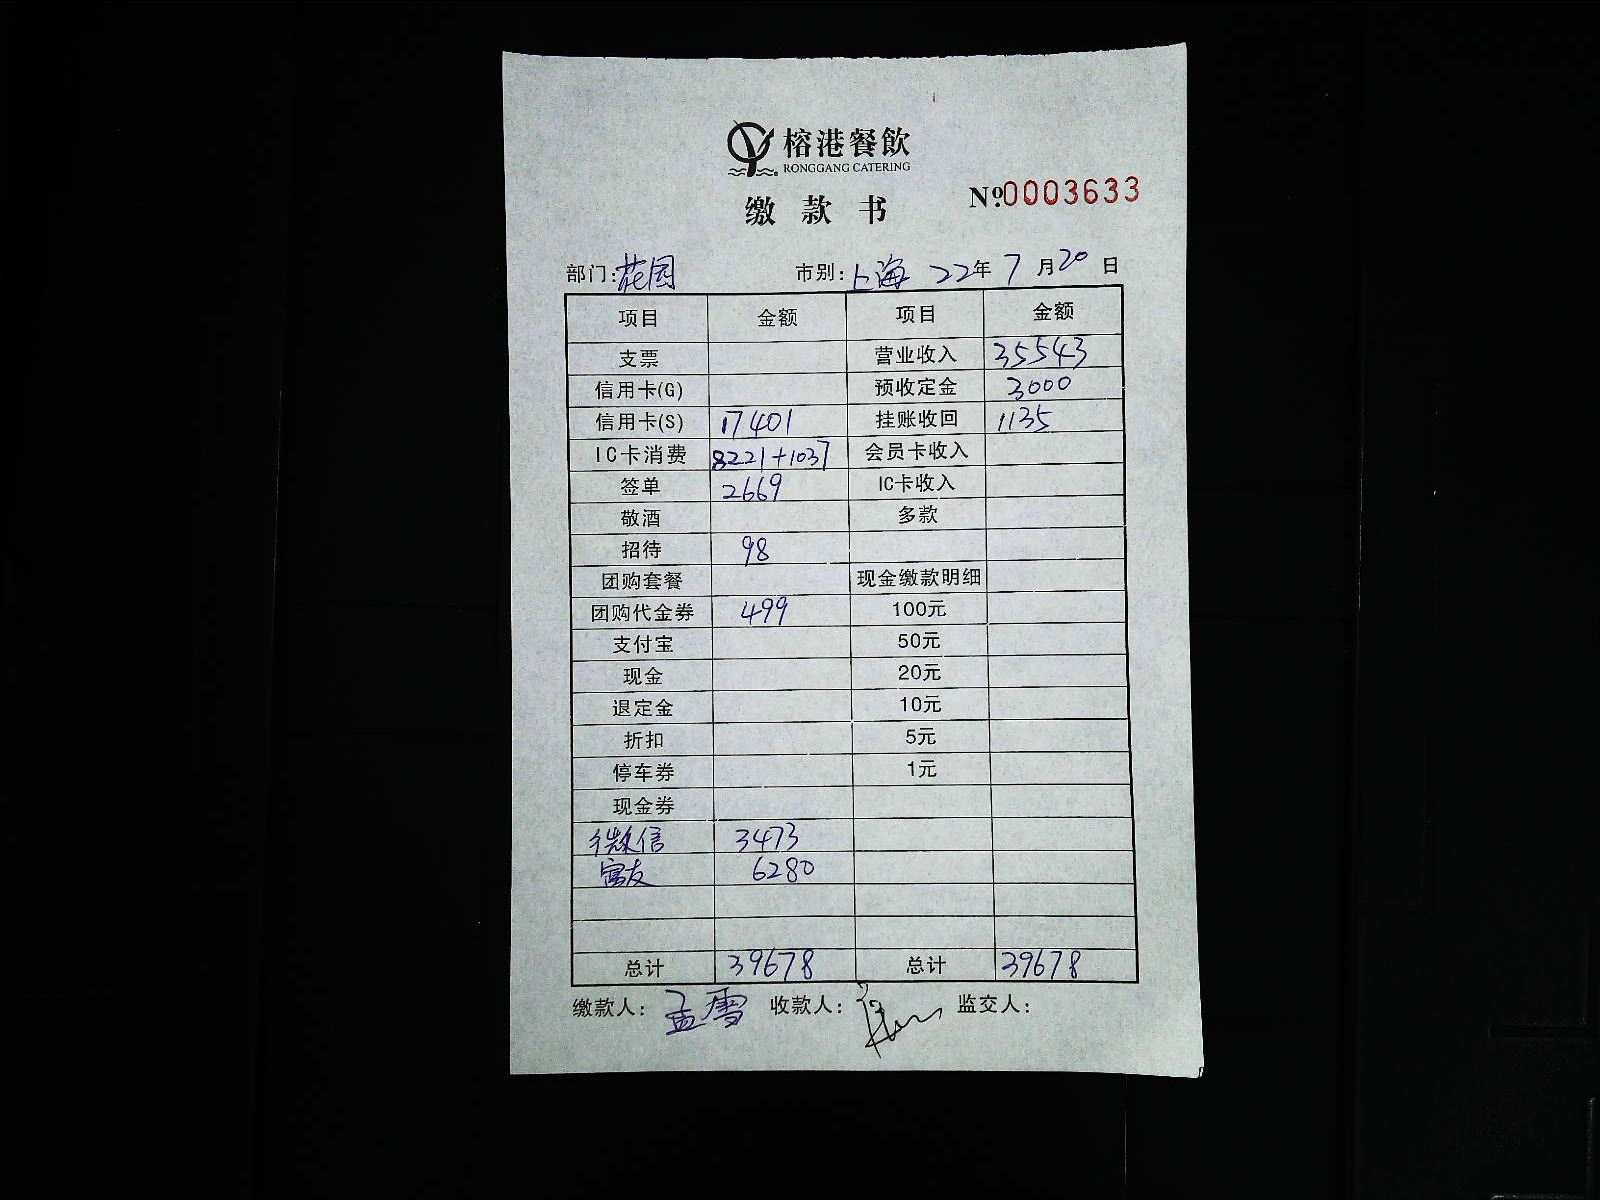 榕港餐飲
RONGGANG CATERING
缴款书
№.0003633
部门:花园 市别:上海 22年7月20日
项目 金额 项目 金额
支票 营业收入 35543
信用卡(G) 预收定金 3000
信用卡(S) 17401 挂账收回 1135
IC卡消费 8221+1037 会员卡收入
签单 2669 IC卡收入
敬酒 多款
招待 98
团购套餐 现金缴款明细
团购代金券 499 100元
支付宝 50元
现金 20元
退定金 10元
折扣 5元
停车券 1元
现金券
微信 3473
富友 6280
总计 39678 总计 39678
缴款人:孟雪 收款人: 监交人: